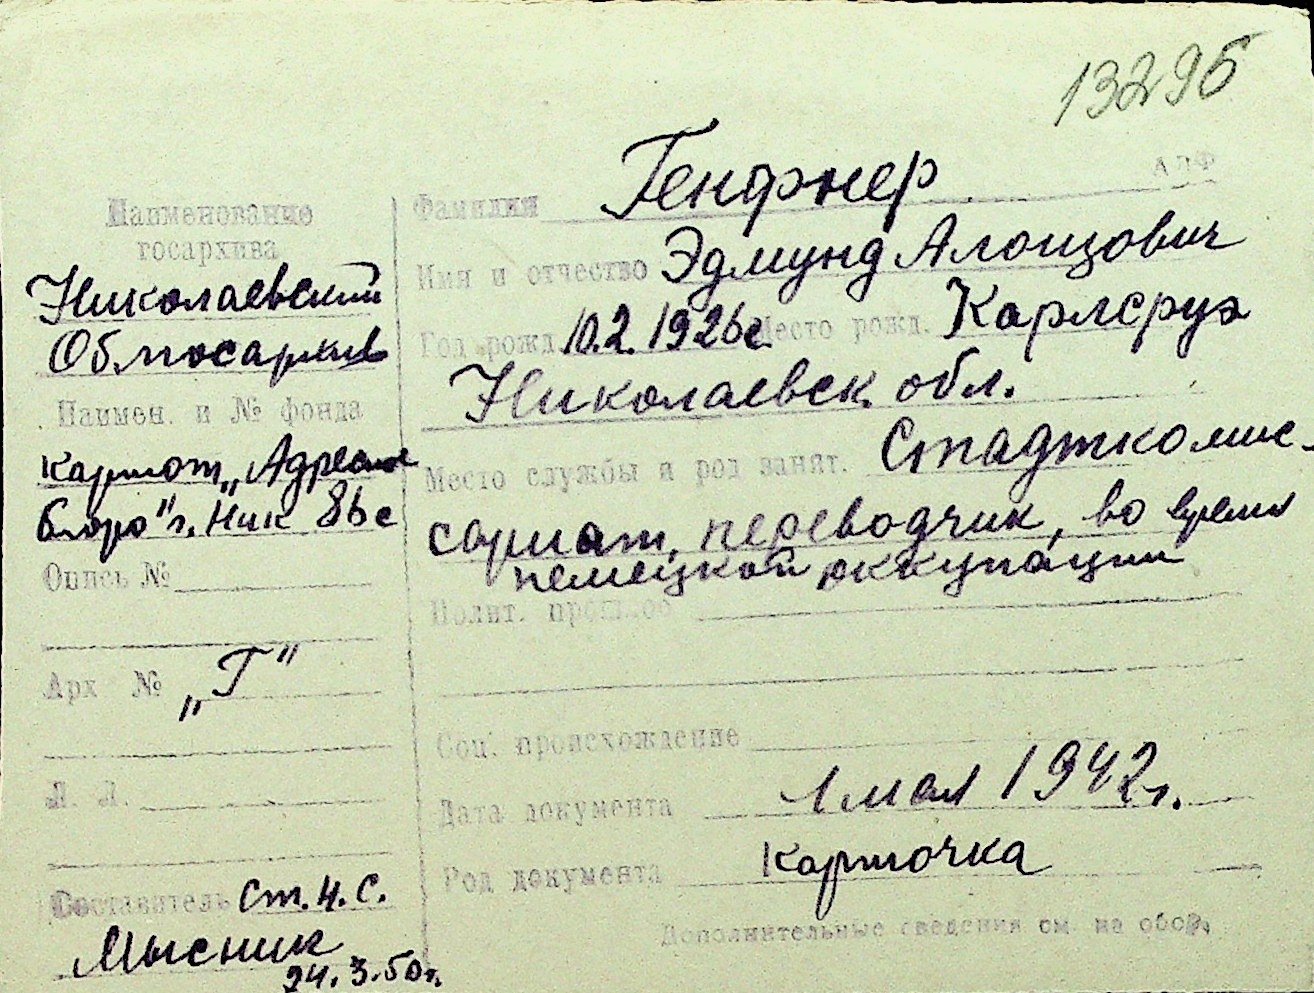 13295
АПФ
Фамилия Генфнер
Имя и отчество Эдмунд Алоизович
Год рожд. 10.2.1926г. Место рожд. Карлсруэ
Николаевск. обл.
Место службы и род занят. Стадткомис-
сариат, переводчик, во время
немецкой оккупации
Полит. прошлое
Соц. происхождение
Дата документа 1 мая 1942г.
Род документа Карточка
Дополнительные сведения см. на обор.
Наименование
госархива
Николаевский
Облгосархив
Наимен. и № фонда
картот. „Адресное
бюро" г. Ник
Опись №
Арх № „Г"
Л. Л.
Составитель Ст. Н. С.
Мысник
24.3.50г.